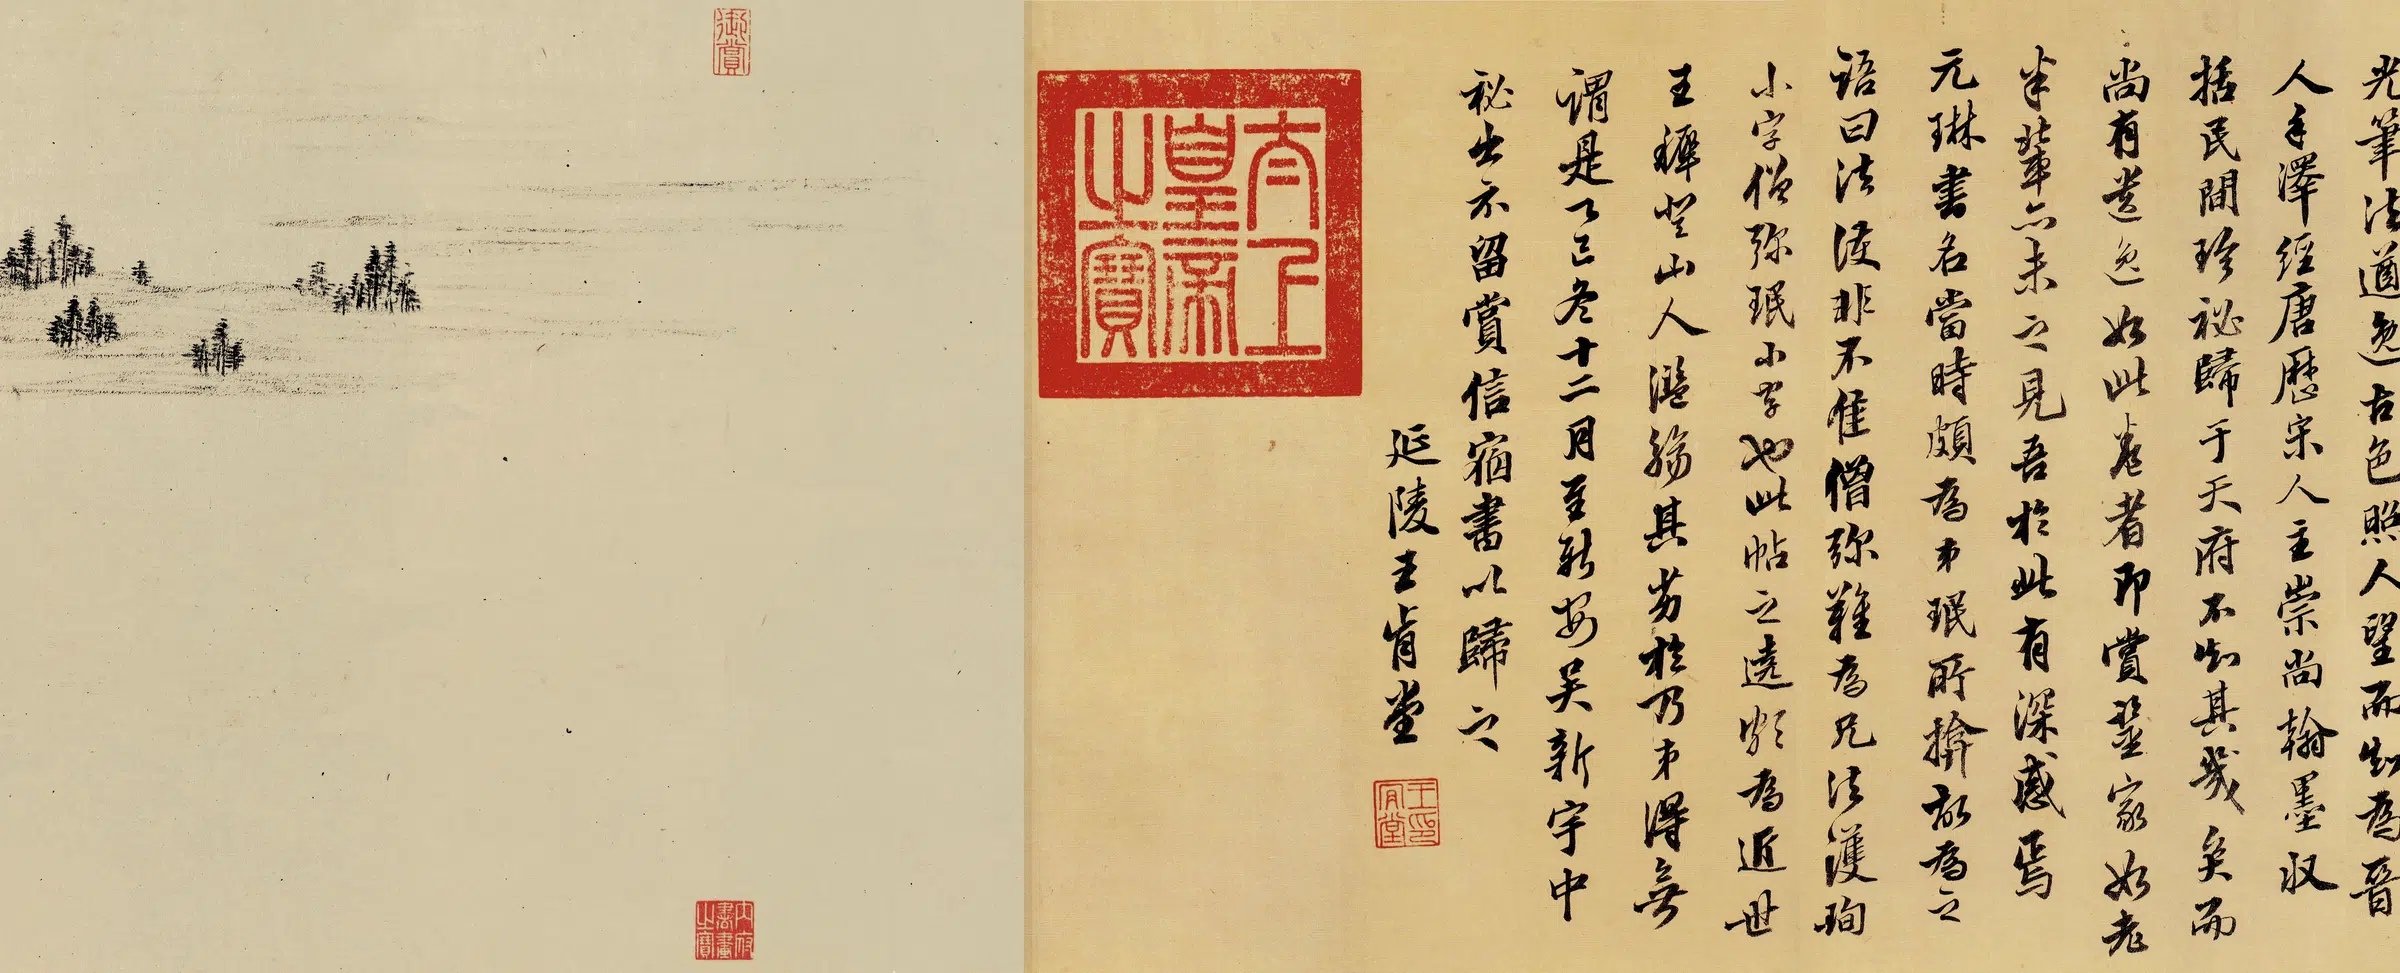 光筆法遒逸古色照人望而知為晉
人手澤經唐歷宋人主崇尚翰墨収
括民間珍祕歸于天府不知其幾矣而
尚有遺逸如此卷者即賞鑒家如老
米輩亦未之見吾於此有深感焉
元琳書名當時頗為弟珉所揜故為之
語曰法護非不佳僧弥難為兄法護珣
小字僧弥珉小字也此帖之遶為近世
王穉登山人濫觴其劣於乃弟得無
謂是乙巳冬十二月至新安吳新宇中
祕出示留賞信宿書以歸之
延陵王肯堂
王印肯堂
太上皇帝之寶
御賞
內府書畫之寶